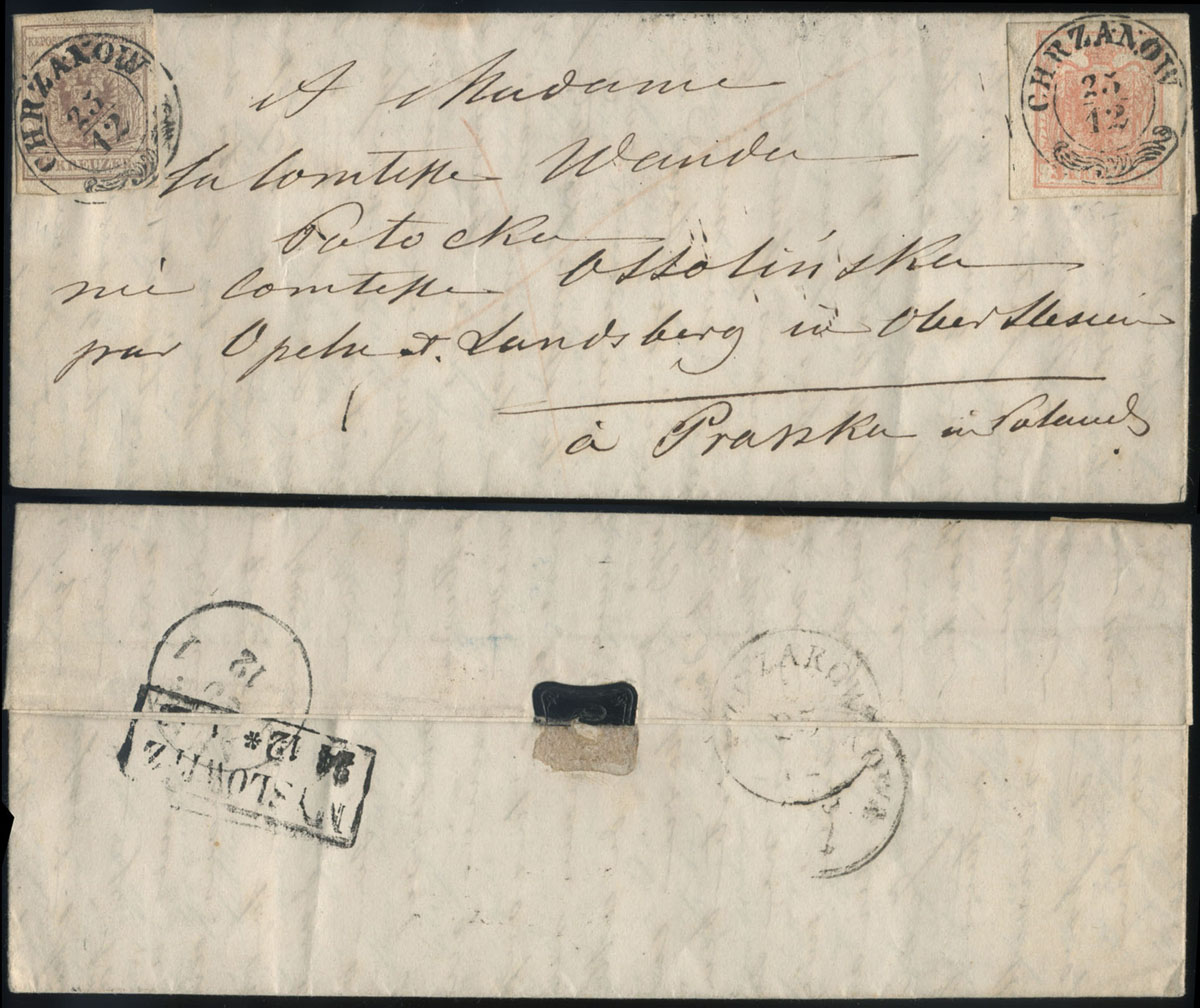 CHRZANOW
23/12
KREUZER
CHRZANOW
23
12
A Madame
La Comtesse Wanda
Potocka
née Comtesse Ossolińska
par Opeln & Landsberg in Oberslesien
à Praszka in Poland
12
1
MYSLOWITZ
24 12 *